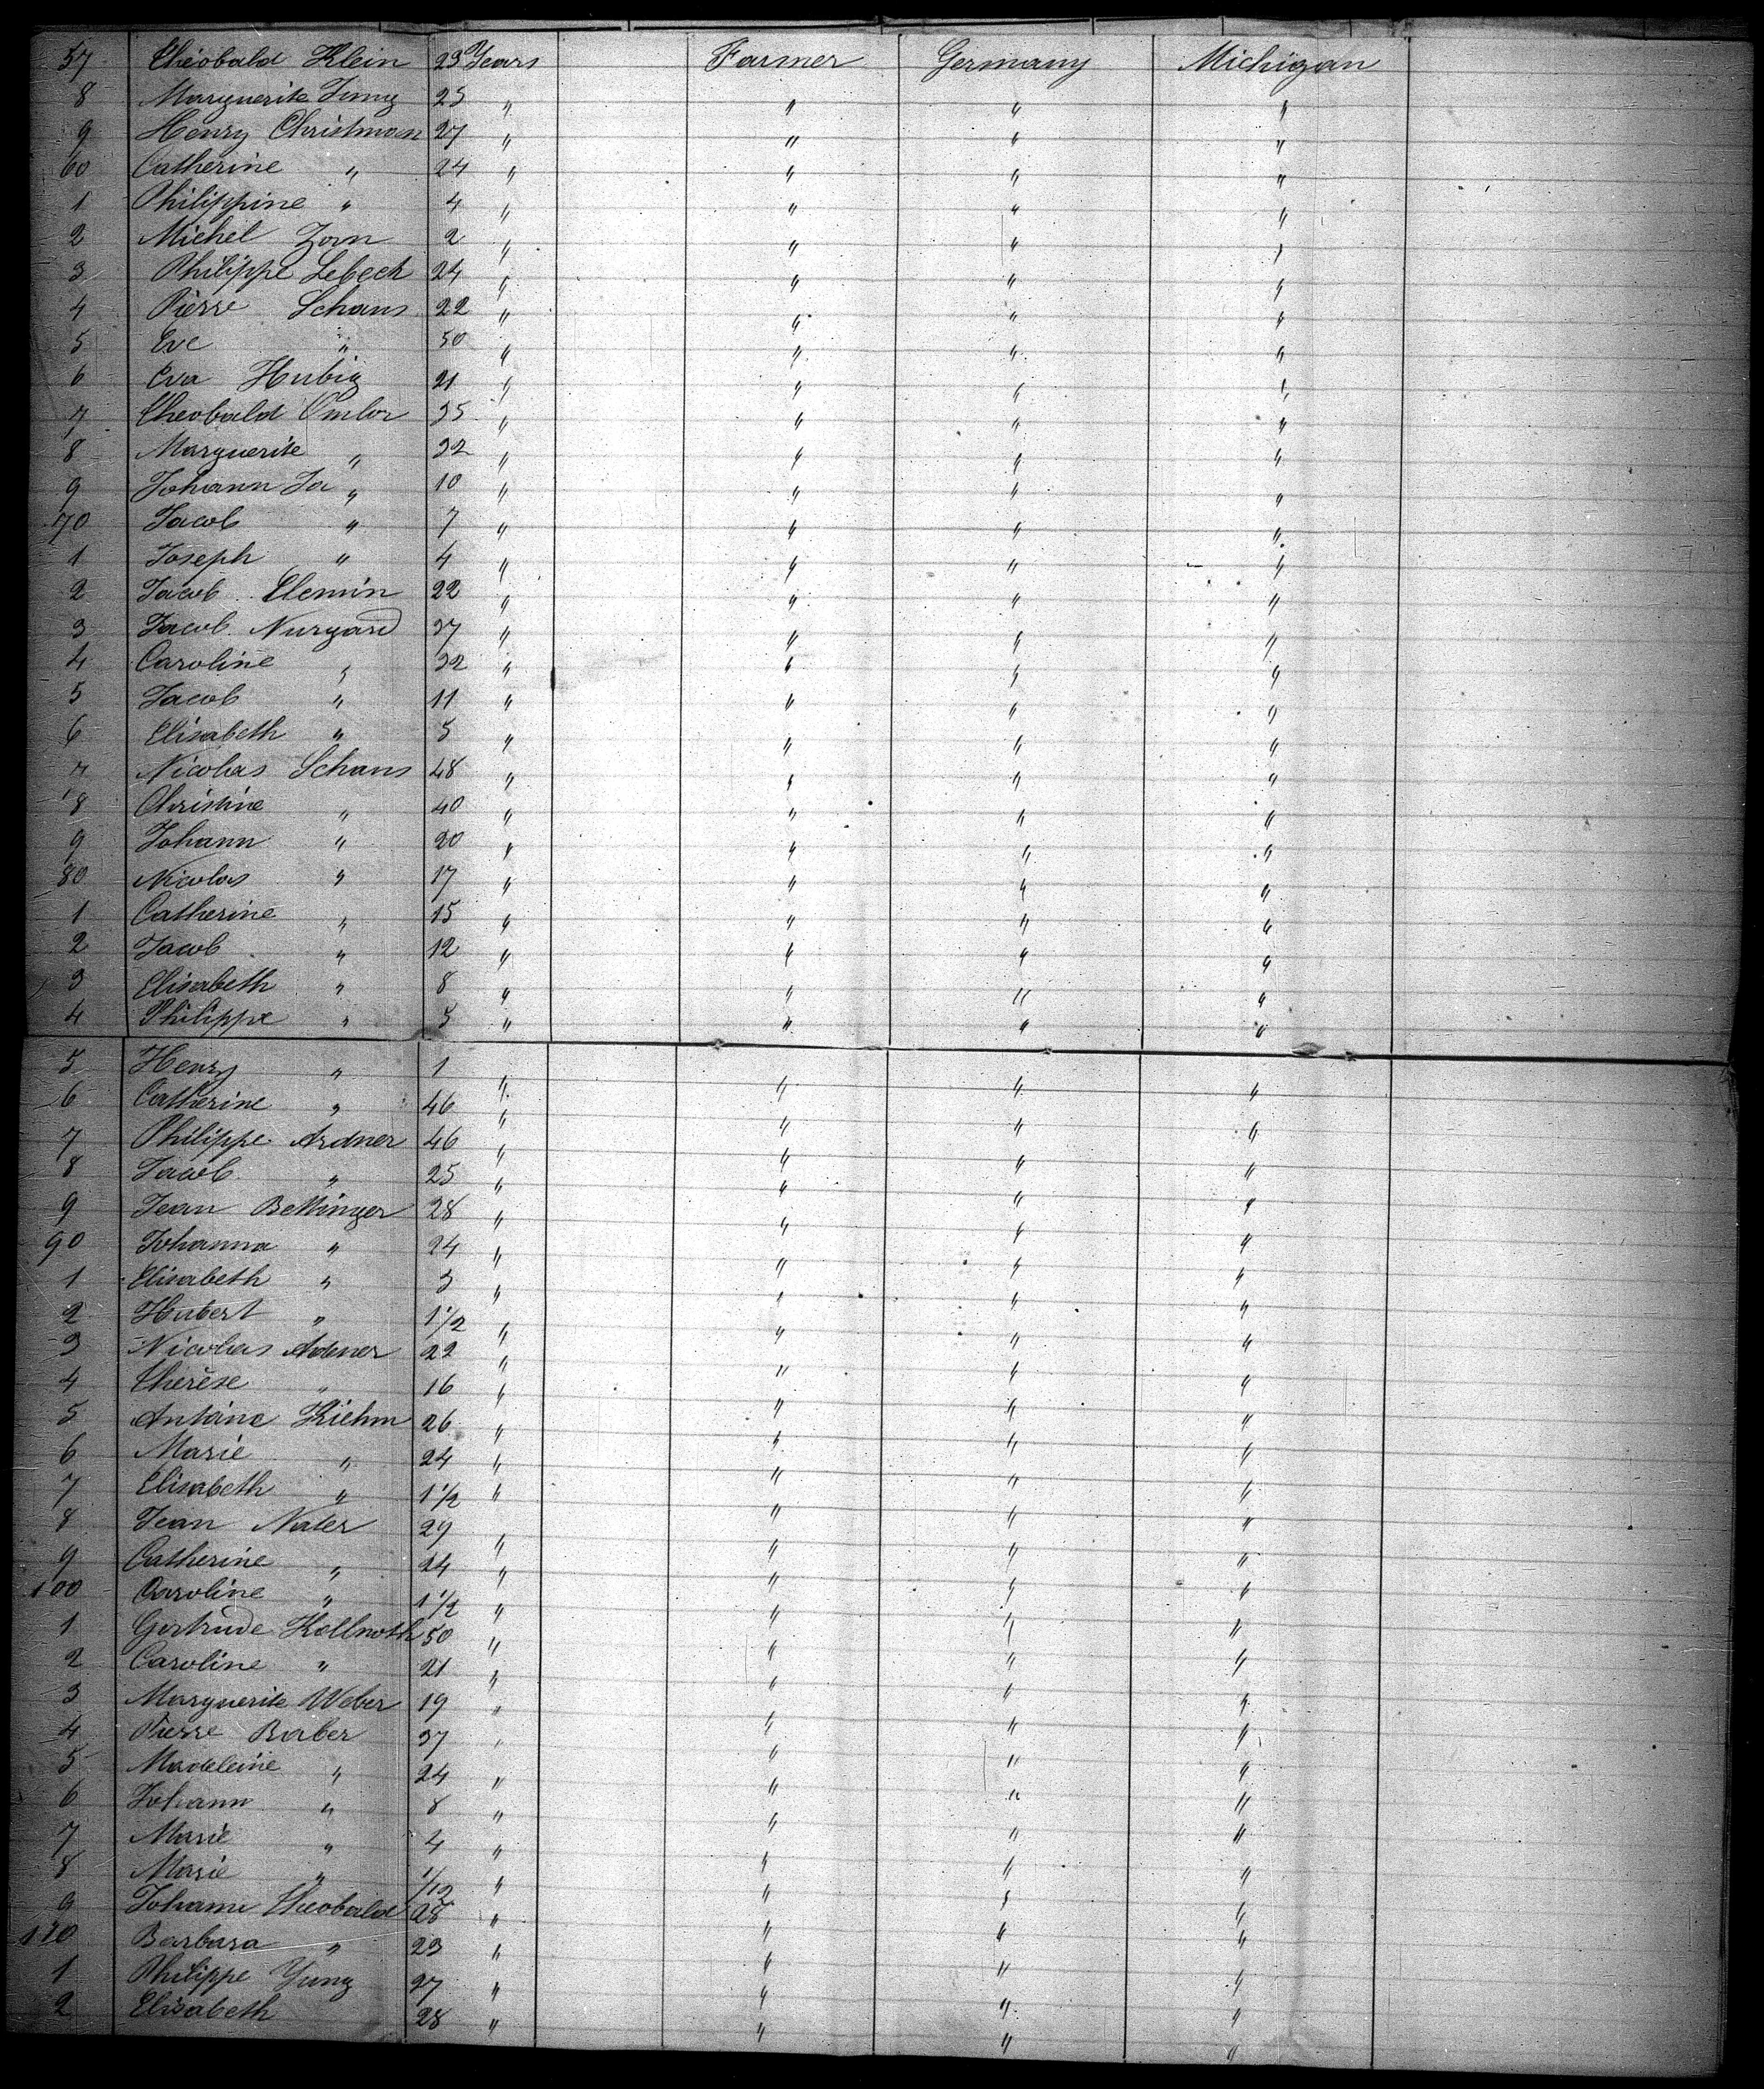 57 Théobald Klein 23 Years Farmer Germany Michigan
8 Marguerite Jung 25 " " " "
9 Henry Christman 27 " " " "
60 Catherine " 24 " " " "
1 Philippine " 4 " " " "
2 Michel Zorn 2 " " " "
3 Philippe Lebech 24 " " " "
4 Pierre Schans 22 " " " "
5 Eve " 50 " " " "
6 Eva Hubig 21 " " " "
7 Theobald Omlor 35 " " " "
8 Marguerite " 32 " " " "
9 Johann Ja " 10 " " " "
70 Jacob " 7 " " " "
1 Joseph " 4 " " " "
2 Jacob Clemin 22 " " " "
3 Jacob Nurgard 37 " " " "
4 Caroline " 32 " " " "
5 Jacob " 11 " " " "
6 Elisabeth " 5 " " " "
7 Nicolas Schans 48 " " " "
8 Christine " 40 " " " "
9 Johann " 20 " " " "
80 Nicolas " 17 " " " "
1 Catherine " 15 " " " "
2 Jacob " 12 " " " "
3 Elisabeth " 8 " " " "
4 Philippe " 5 " " " "
5 Henry " 1 " " " "
6 Catherine " 46 " " " "
7 Philippe Ardner 46 " " " "
8 Jacob " 25 " " " "
9 Jean Bettinger 28 " " " "
90 Johanna " 24 " " " "
1 Elisabeth " 3 " " " "
2 Hubert " 1 1/2 " " " "
3 Nicolas Ardner 22 " " " "
4 Thérèse " 16 " " " "
5 Antoine Kiehm 26 " " " "
6 Marie " 24 " " " "
7 Elisabeth " 1 1/2 " " " "
8 Jean Nater 29 " " " "
9 Catherine " 24 " " " "
100 Caroline " 1 1/2 " " " "
1 Gertrude Kollnoth 50 " " " "
2 Caroline " 21 " " " "
3 Marguerite Weber 19 " " " "
4 Pierre Baber 37 " " " "
5 Madeleine " 24 " " " "
6 Johann " 8 " " " "
7 Marie " 4 " " " "
8 Marie " 1/12 " " " "
9 Johann Theobald 28 " " " "
110 Barbara " 23 " " " "
1 Philippe Yung 27 " " " "
2 Elisabeth 28 " " " "